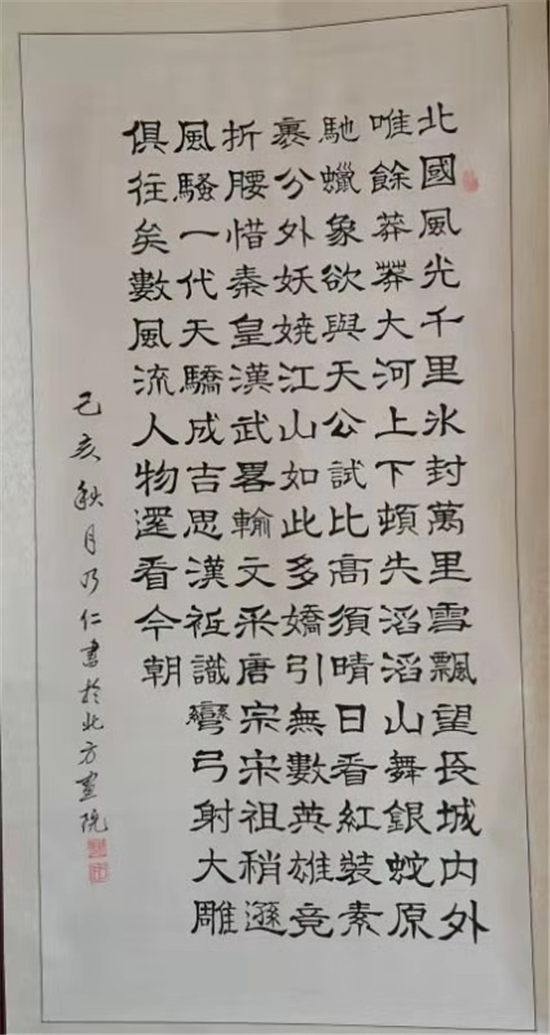 北國風光千里氷封萬里雪飄望長城内外
唯餘莽莽大河上下頓失滔滔山舞銀蛇原
馳蠟象欲與天公試比高須晴日看紅裝素
裹分外妖嬈江山如此多嬌引無數英雄竟
折腰惜秦皇漢武畧輸文采唐宗宋祖稍遜
風騷一代天驕成吉思漢衹識彎弓射大雕
俱往矣數風流人物還看今朝
己亥秋月乃仁書於北方畫院